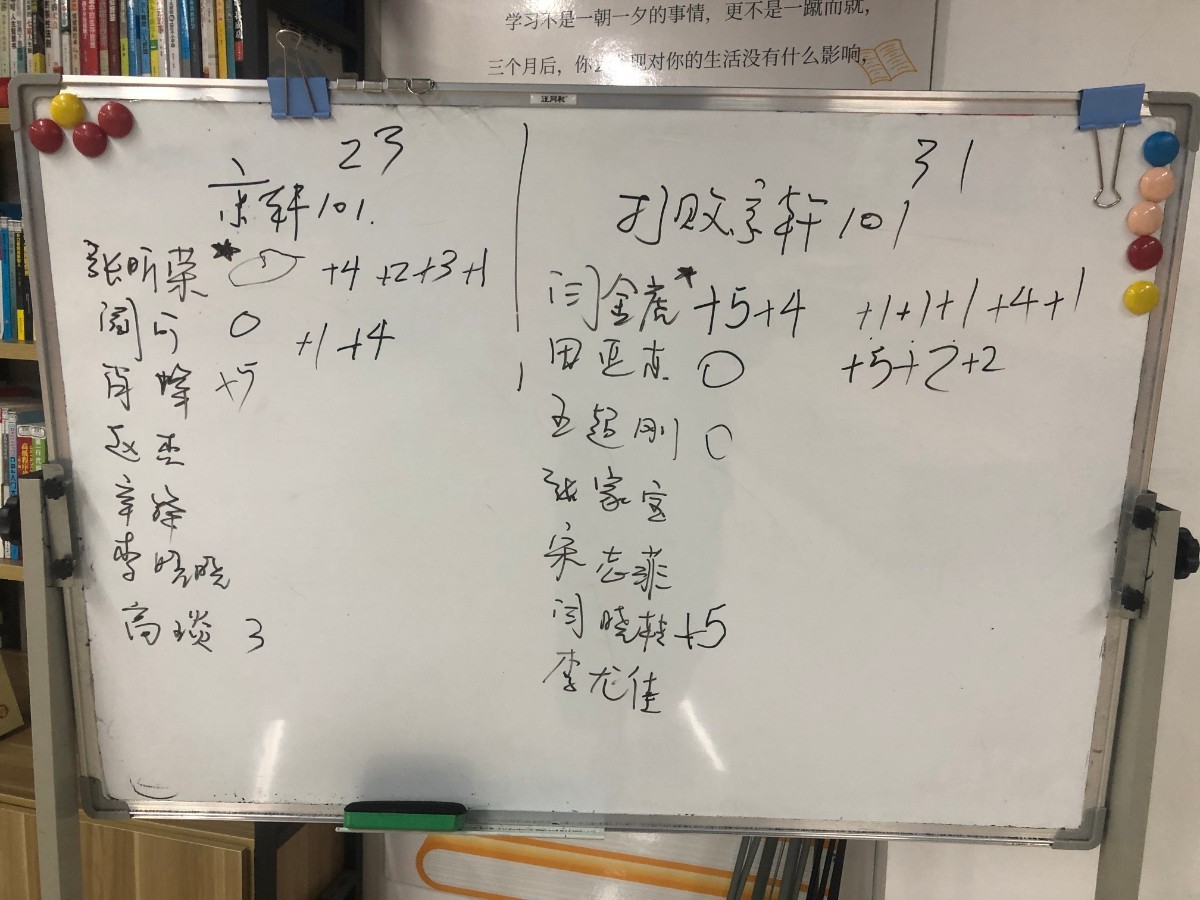 学习不是一朝一夕的事情，更不是一蹴而就，
三个月后，你会发现对你的生活没有什么影响，
23
京轩101.
张昕荣★ +4 +2+3+1
阎可 0 +1+4
肖峰 +5
赵杰
辛峰
李晓晓
高琰 3
31
打败京轩101
闫金虎★ +5+4 +1+1+1+4+1
田亚东 0 +5+2+2
王超刚 0
张家宝
宋志菲
闫晓转+5
李龙佳